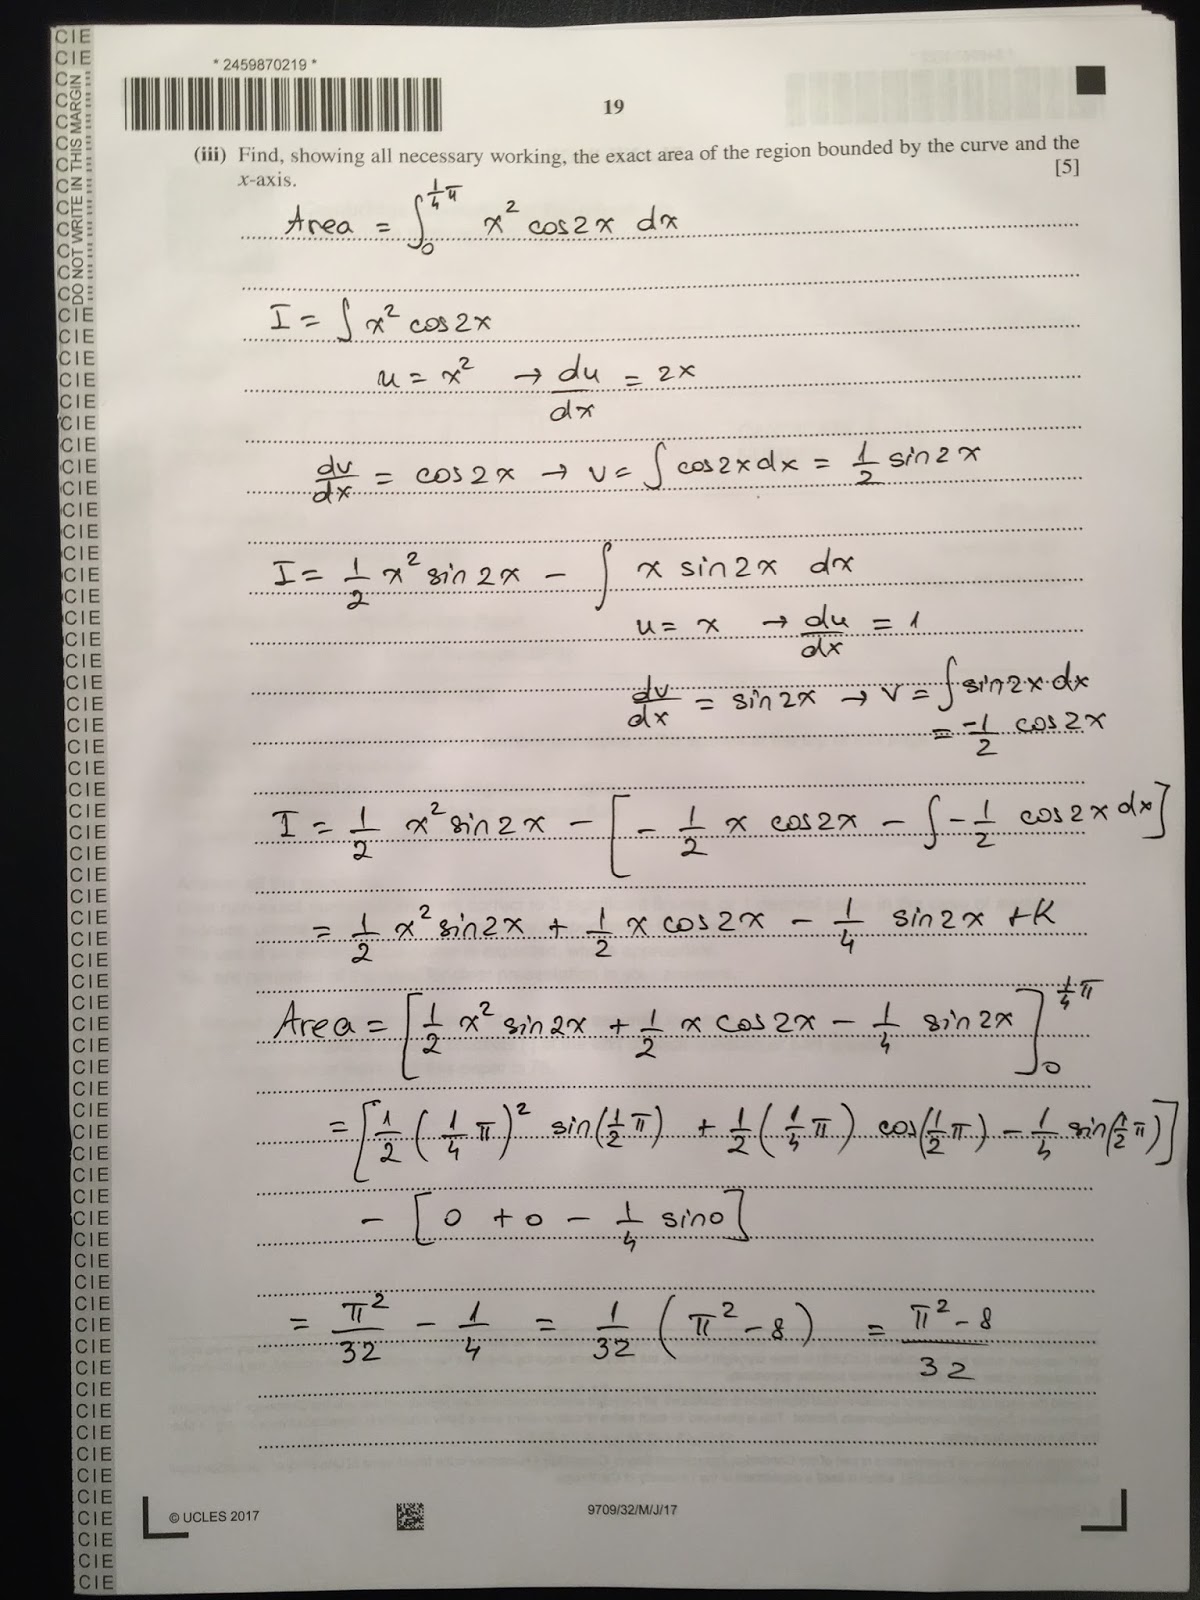 * 2459870219 *
19
DO NOT WRITE IN THIS MARGIN
(iii) Find, showing all necessary working, the exact area of the region bounded by the curve and the
x-axis. [5]
Area = ∫₀^{¼π} x² cos2x dx
I = ∫ x² cos2x
u = x² → du/dx = 2x
dv/dx = cos2x → v = ∫ cos2x dx = 1/2 sin2x
I = 1/2 x² sin2x − ∫ x sin2x dx
u = x → du/dx = 1
dv/dx = sin2x → v = ∫ sin2x dx
= -1/2 cos2x
I = 1/2 x² sin2x − [ − 1/2 x cos2x − ∫ − 1/2 cos2x dx ]
= 1/2 x² sin2x + 1/2 x cos2x − 1/4 sin2x + K
Area = [ 1/2 x² sin2x + 1/2 x cos2x − 1/4 sin2x ]₀^{¼π}
= [ 1/2 (1/4 π)² sin(1/2 π) + 1/2 (1/4 π) cos(1/2 π) − 1/4 sin(1/2 π) ]
− [ 0 + 0 − 1/4 sin0 ]
= π²/32 − 1/4 = 1/32 (π² − 8) = π² − 8/32
© UCLES 2017
9709/32/M/J/17